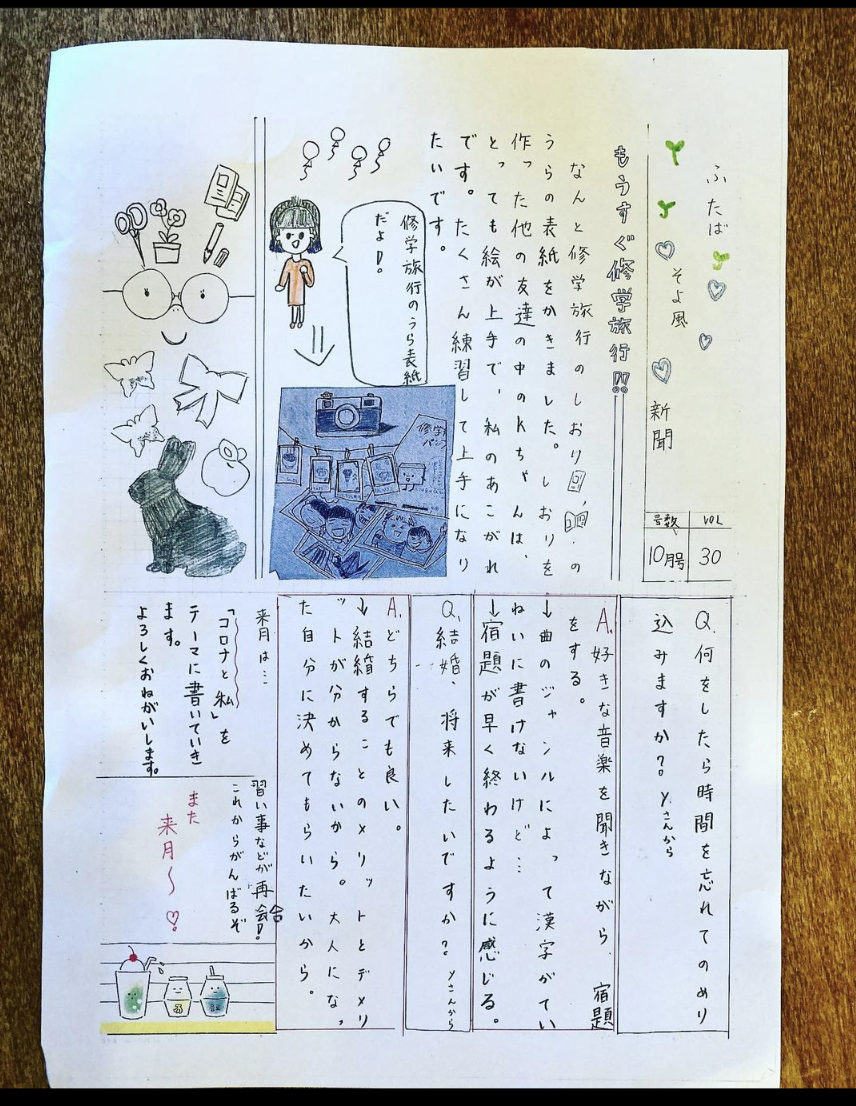 ふたば
そよ風
新聞
VOL 30
号数 10月号
もうすぐ修学旅行!!
なんと修学旅行のしおり、の
うらの表紙をかきました。しおりを
作った他の友達の中のKちゃんは、
とっても絵が上手で、私のあこがれ
です。たくさん練習して上手になり
たいです。
修学旅行のうら表紙
だよ!
修学
パン
Q.何をしたら時間を忘れてのめり
込みますか?。Yさんから
A.好きな音楽を聞きながら、宿題
をする。
→曲のジャンルによって漢字がてい
ねいに書けないけど…
→宿題が早く終わるように感じる。
Q.結婚、将来したいですか?。Yさんから
A.どちらでも良い。
→結婚することのメリットとデメリ
ットが分からないから。大人になっ
た自分に決めてもらいたいから。
来月は…
「コロナと私」を
テーマに書いていき
ます。
よろしくおねがいします。
習い事などが再会!
これからがんばるぞ
また
来月〜♡